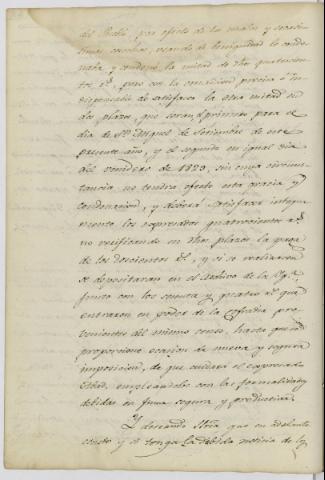 del Pueblo, por efecto de los malos y escasisi-
timas cosechas, usando de benignidad le condo-
naba y condonó la mitad de dhos quatrocien-
tos r.s, pero con la condicion precisa é in-
dispensable de satisfacer la otra mitad en
dos plazos, que serán, el primero para el
dia de Sn Miguel de Setiembre de este
presente año, y el segundo en igual dia
del venidero de 1829, sin cuya circuns-
tancia no tendra efecto esta gracia y
condonacion, y deberá satisfacer integra-
mente los expresados quatrocientos r.s
no verificando en dhos plazos la paga
de los doscientos r.s, y si se realizaren
se depositaran en el Archivo de la Yg.a
junto con los ochenta y quatro r.s que
entraron en poder de la Cofradia pro-
venientes del mismo censo, hasta que se
proporcione ocasion de nueva y segura
imposicion, de que cuidará el expresado
Abad, empleandolos con las formalidades
debidas en finca segura y productiva.
Y deseando Sria que en adelante
conste y se tenga la debida noticia de lo